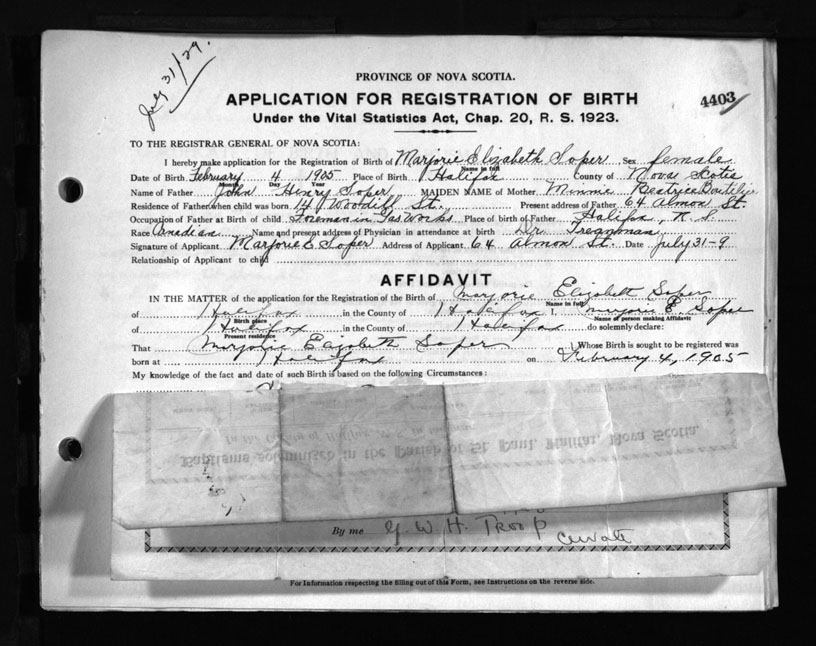 July 31/29.
PROVINCE OF NOVA SCOTIA.
4403
APPLICATION FOR REGISTRATION OF BIRTH
Under the Vital Statistics Act, Chap. 20, R. S. 1923.
TO THE REGISTRAR GENERAL OF NOVA SCOTIA:
I hereby make application for the Registration of Birth of Marjorie Elizabeth Soper Sex female
Name in full
Date of Birth February 4 1905 Place of Birth Halifax County of Nova Scotia
Month Day Year
Name of Father John Henry Soper MAIDEN NAME of Mother Minnie Beatrice
Residence of Father when child was born 14 St. Present address of Father 64 Almon St.
Occupation of Father at Birth of child Foreman in Gas Works Place of birth of Father Halifax, N. S.
Race Canadian Name and present address of Physician in attendance at birth Dr.
Signature of Applicant Marjorie E Soper Address of Applicant 64 Almon St. Date July 31-9
Relationship of Applicant to child
AFFIDAVIT
IN THE MATTER of the application for the Registration of the Birth of Marjorie Elizabeth Soper
Name in full
of Halifax in the County of Halifax I, Marjorie E. Soper
Birth place Name of person making Affidavit
of Halifax in the County of Halifax do solemnly declare:
Present residence
That Marjorie Elizabeth Soper Whose Birth is sought to be registered was
born at Halifax on February 4, 1905
My knowledge of the fact and date of such Birth is based on the following Circumstances:
Baptisms solemnised in the Parish of St. Paul, Halifax, Nova Scotia.
By me G. W. H. Troop
Curate
For Information respecting the filling out of this Form, see Instructions on the reverse side.